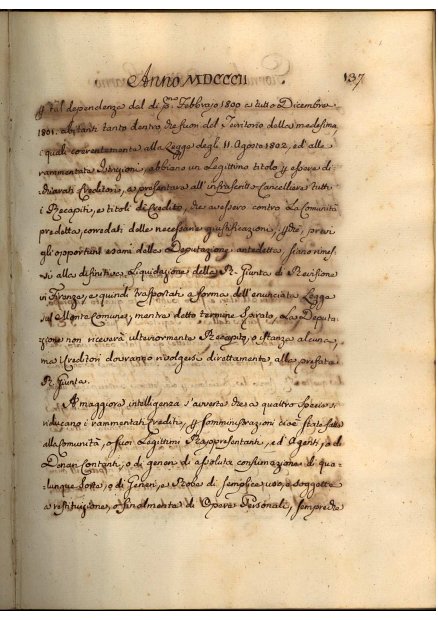 Anno MDCCCII 137
tal dependenza dal dì p.mo Febbrajo 1800 a tutto Dicembre
1801. abitanti tanto dentro che fuori del Territorio della medesima,
i quali coerentemente alla Legge degli 11. Agosto 1802, ed alle
rammentate Istruzioni abbiano un Legittimo titolo essere di
chiarati Creditori, a presentare all' infrascritto Cancelliere tutti
i Recapiti, e titoli di Credito, che avessero contro La Comunità
predetta, corredati delle necessarie giustificazioni, previ
gli opportuni esami della Deputazione antedetta, siano rimes:
si alla difinitiva Liquidazione della R. Giunta di Revisione
in Firenze, e quindi trasportati a forma dell' enunciata Legge
sul Monte Comune; mentre detto termine spirato, La Deputa:
zione non riceverà ulteriormente Recapito, o istanza alcuna,
ma i Creditori dovranno rivolgersi direttamente alla prefata
R. Giunta.
A maggiore intelligenza s'avverte che a quattro Specie si
riducano i rammentati Crediti, somministrazioni cioè state fatte
alla Comunità, o suoi Legittimi Rappresentanti, ed Agenti, o di
Denari Contanti, o di generi di assoluta consumazione di qua:
lunque sorte, o di Generi, e Robe di semplice uso, e soggette
a restituzione, o finalmente di Opere Personali, sempre che